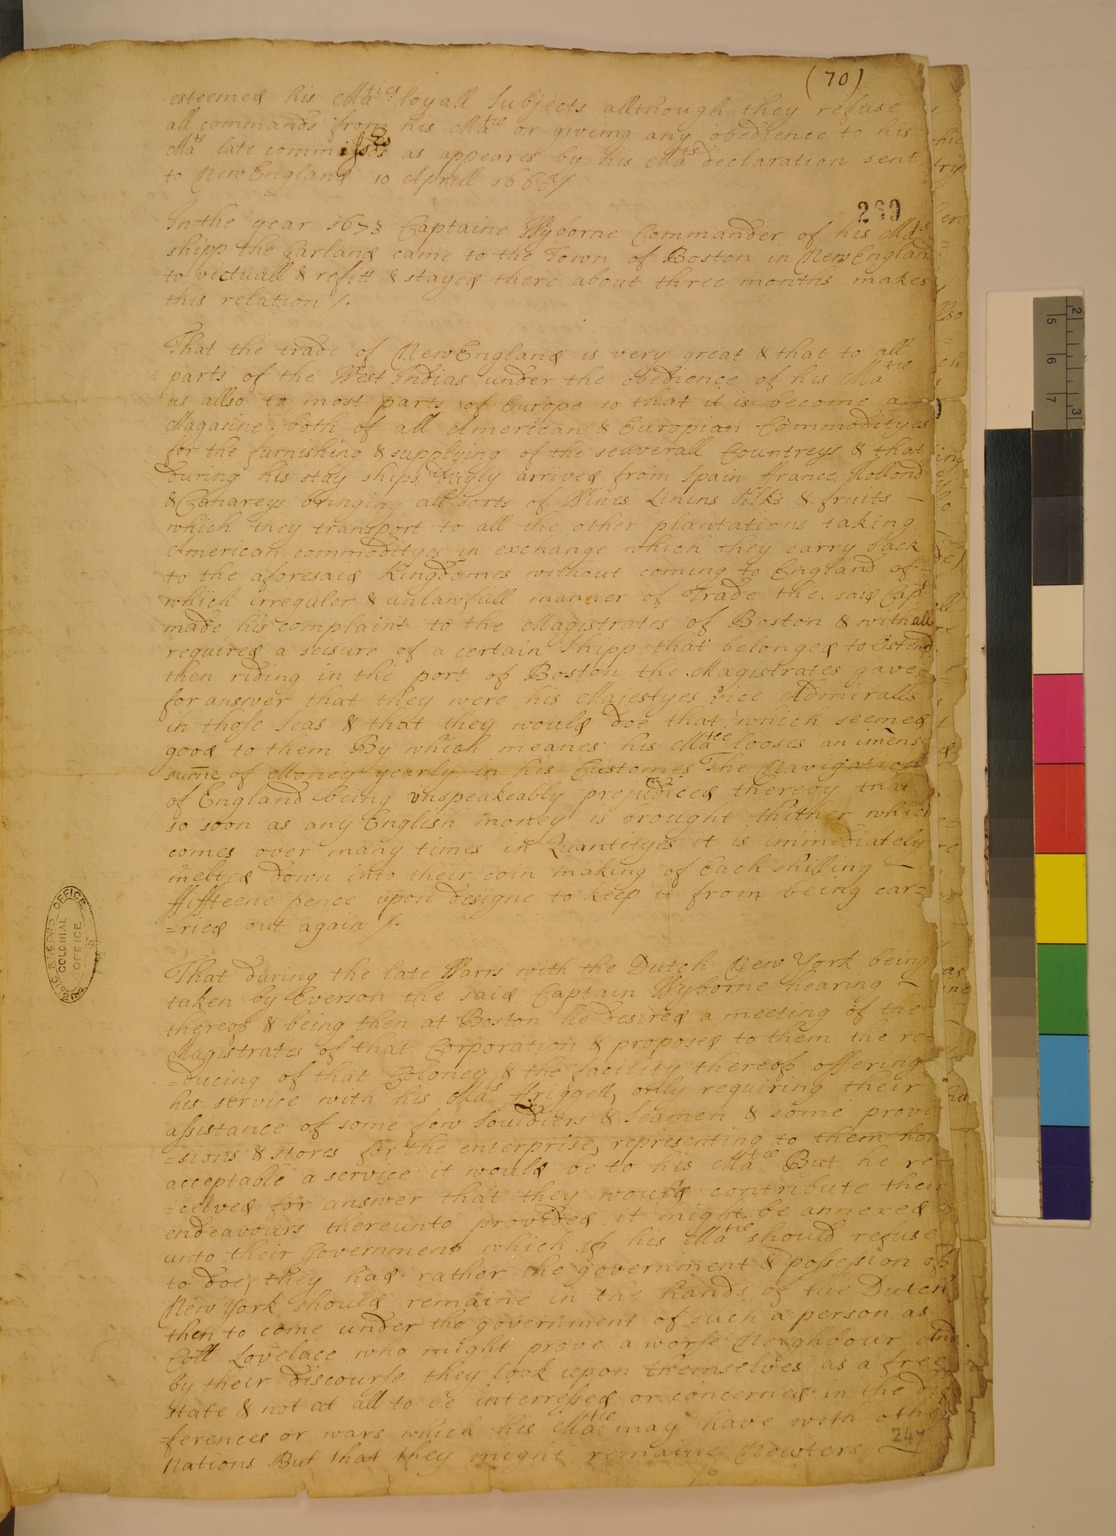 (70)
esteemed his Ma:ties loyall Subjects allthough they refuse
all commands from his Matie or giveing any obedience to his
Mats late commissrs as appeares by his Mats declaration sent
to New England 10 Aprill 1666/.
260
In the year 1673 Captaine Wyborne Commander of his Mats
shipp the Garland came to the Town of Boston in New England
to victuall & refitt & stayed there about three months makes
this relation /.
That the trade of New England is very great & that to all
parts of the West Indias under the obedience of his Matie
as allso to most parts of Europe so that it is become a
Magasine both of all American & Europian Commodityes
for the furnishing & supplying of the seuverall Countreys & that
during his stay ships dayly arrived from Spain ffrance Holland
& Canareys bringing all sorts of Wines Linens silks & fruits —
which they transport to all the other plantations taking
American commodityes in exchange which they carry back
to the aforesaid Kingdomes without coming to England of
which irreguler & unlawfull manner of Trade the said Capt
made his complaint to the Magistrates of Boston & withall
required a seisure of a certain shipp that belonged to Ostend
then riding in the port of Boston the Magistrates gave
for answer that they were his Majestyes Vice Admiralls
in those seas & that they would doe that which seemed
good to them By which meanes his Matie looses an imens
sume of Money yearly in his Customes The Navigation
of England being unspeakeably prejudiced thereby that
so soon as any English money is brought thither which
comes over many times in Quantityes it is immediately
melted down into their coin making of each shilling —
ffifteene pence upon designe to keep it from being car=
=ried out again /.
That during the late Warrs with the Dutch New York being
taken by Everson the said Captain Wyborne hearing —
thereof & being then at Boston he desired a meeting of the
Magistrates of that Corporation & proposed to them the re=
=ducing of that Coloney & the facility thereof offering
his service with his Mats friggett, only requiring their
assistance of some few Souldiers & Seamen & some provi
=sions & stores for the enterprise, representing to them how
acceptable a service it would be to his Matie But he re=
=ceived for answer that they would contribute their
endeavours thereunto provided it might be annexed
unto their Government which if his Matie should refuse
to doe, they had rather the government & possession of
New York should remaine in the hands of the Dutch
then to come under the government of such a person as
Coll Lovelace who might prove a worse Neighbour and
by their discourse they look upon themselves as a free
state & not at all to be interressed or concerned in the dif
=ferences or wars which his Matie may have with other
Nations But that they might remaine Newters —
247
COLONIAL
OFFICE